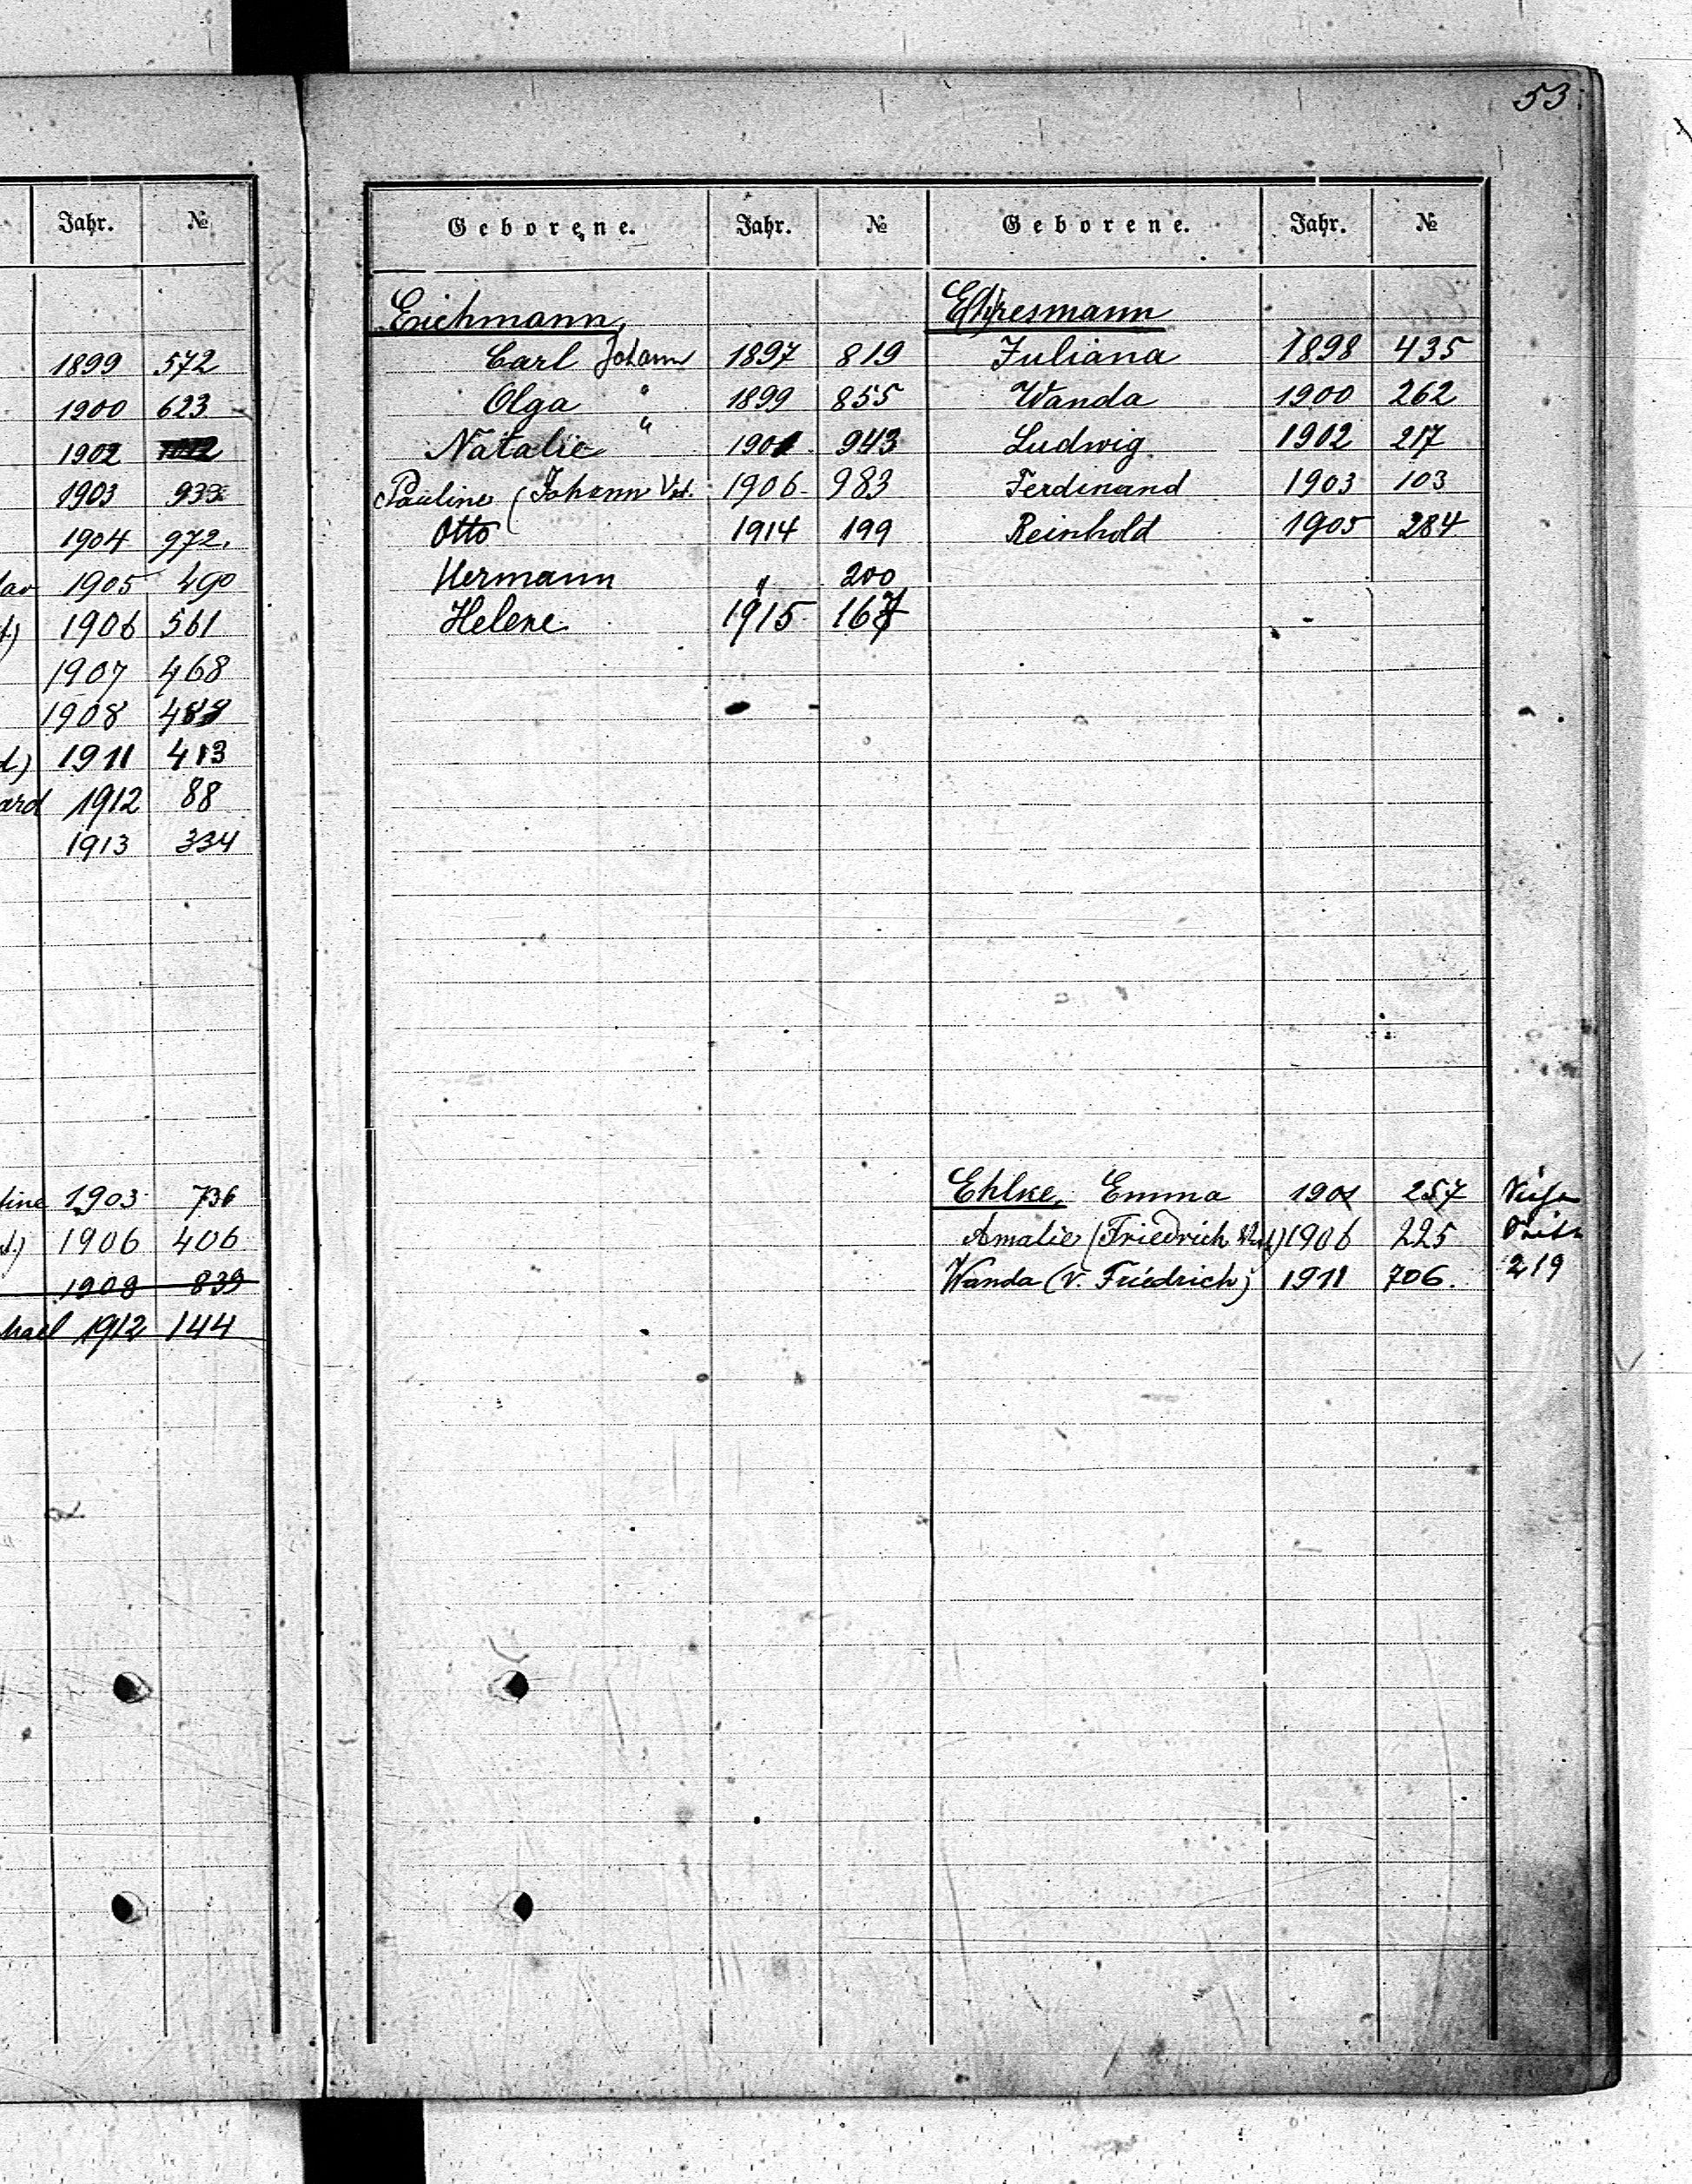 53
Jahr. №
1899 572
1900 623
1902
1903
1904 972.
1905 490
1906 561
1907 468
1908
1911 413
1912 88
1913 334
1903 736
1906 406
1909 839
1912 144
Geborene. Jahr. №
Eichmann,
Carl Johann 1897 819
Olga " 1899 855
Natalie " 1901 943
Pauline (Johann Vat. 1906 983
Otto 1914 199
Hermann " 200
Helene 1915 167
Geborene. Jahr. №
Ehresmann
Juliana 1898 435
Wanda 1900 262
Ludwig 1902 217
Ferdinand 1903 103
Reinhold 1905 284
Ehlke, Emma 1901 257
Amalie (Friedrich Vat.) 1906 225
Wanda (V. Friedrich) 1911 706. 219